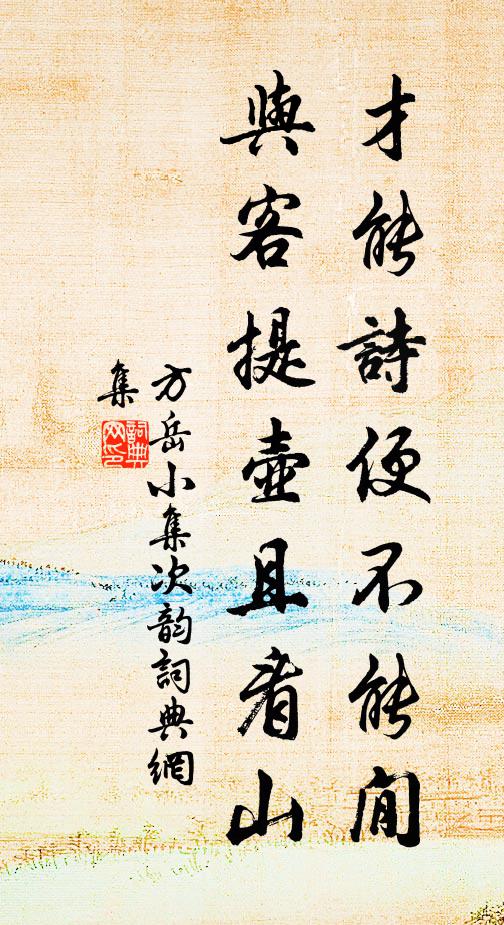 才能詩便不能閒
與客提壺且看山
方岳小集次韵詞典網
集
詞典網印